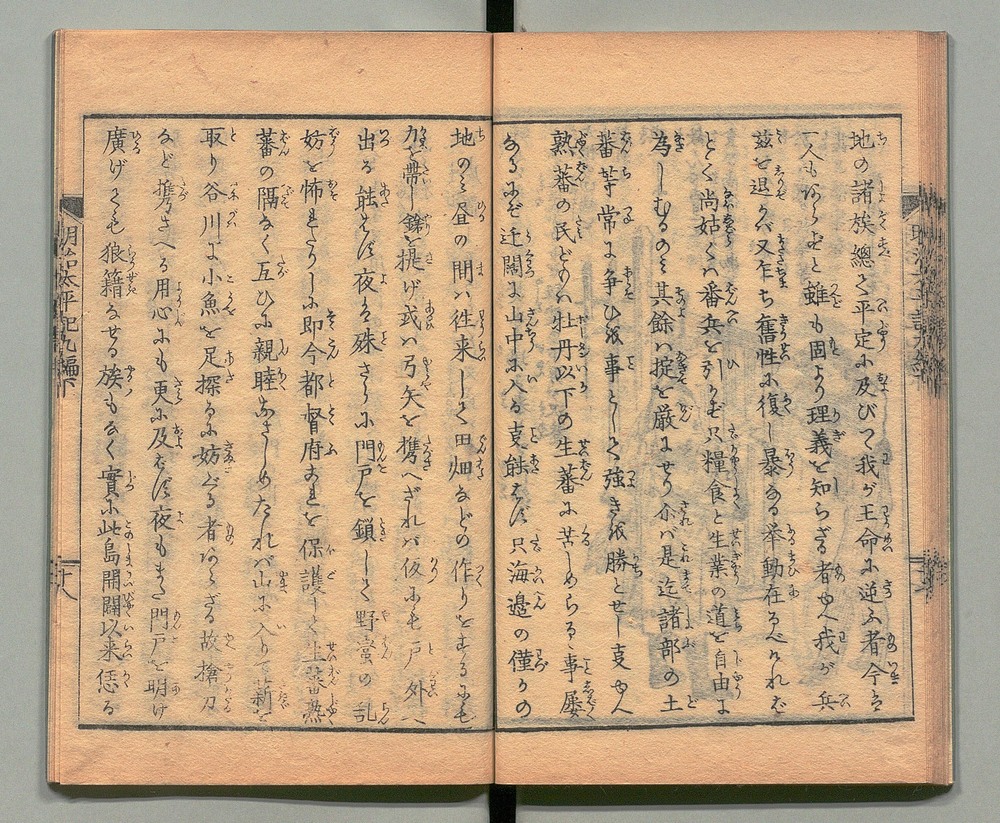 地の諸族總て平定に及びて我が王命に逆ふ者今は
一人もあらずと雖も固より理義を知らざる者ゆへ我が兵
茲を退かバ又乍ち舊性に復し暴なる挙動在るべけれバ
とて尚姑くハ番兵を引かず只糧食と生業の道を自由に
為しむるのミ其餘ハ掟を嚴にせり介バ是迄諸部の土
蕃等常に争ひを事として強きを勝とせし事ゆへ
熟蕃の民どもハ牡丹以下の生蕃に苦しめらるゝ事屡
なるにぞ迂闊に山中に入る事能はず只海邉の僅かの
地のミ昼の間ハ徃来して田畑などの作りをするにも
刀を帶し鎗を提げ或ハ弓矢を携へざれバ仮にも戸外へ
出る能はず夜は殊さらに門戸を鎖して野蛮の乱
妨を怖れたりしに即今都督府ありて保護して生蕃熟
蕃の隔なく互ひに親睦なさしめたれバ山に入りて薪を
取り谷川に小魚を足探るに妨ぐる者あらざる故槍刀
など携さへる用心にも更に及はず夜もまた門戸を明け
廣げても狼籍なせる族もなく實に此島開闢以来恁る
明治太平記九編下
十八